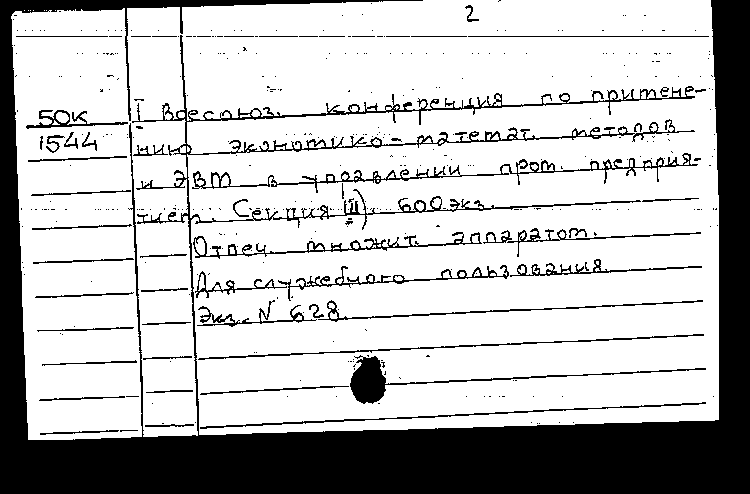 2
50к I Всесоюз. конференция по примене-
1544 нию экономико-математ. методов
и ЭВМ в управлении пром. предприя-
тием. Секция III). 600 экз.
Отпеч. множит. аппаратом.
Для служебного пользования.
Экз. N 628.